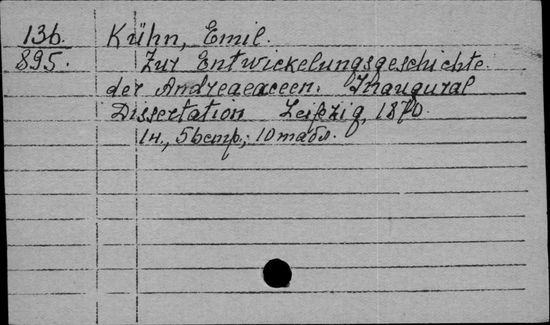 136. Kühn, Emil.
895. Zur Entwickelungsgeschichte
der Andreaeaceen. Inaugural
Dissertation Leipzig, 1870.
1 ч., 56 стр.; 10 табл.